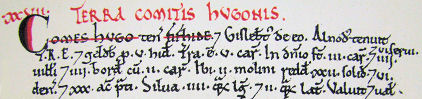 XXVII. TERRA COMITIS HUGONIS.
COMES HUGO ten& FITHIDE. 7 Gislebt' de eo. Alnod tenuit
T.R.E. 7 geldb' p. v. hid'. Tra. ē. v. car'. In dnio st'. iii. car' 7 vi. serui.
uilli 7 iiii. bord' cū. ii. car'. Ibi. ii. molini redd' xxii. solid' 7 vi.
den' 7 xxx. ac' p̄ti. Silua iiii. q̄z lḡ. 7 ii. q̄z lat'. Valuit